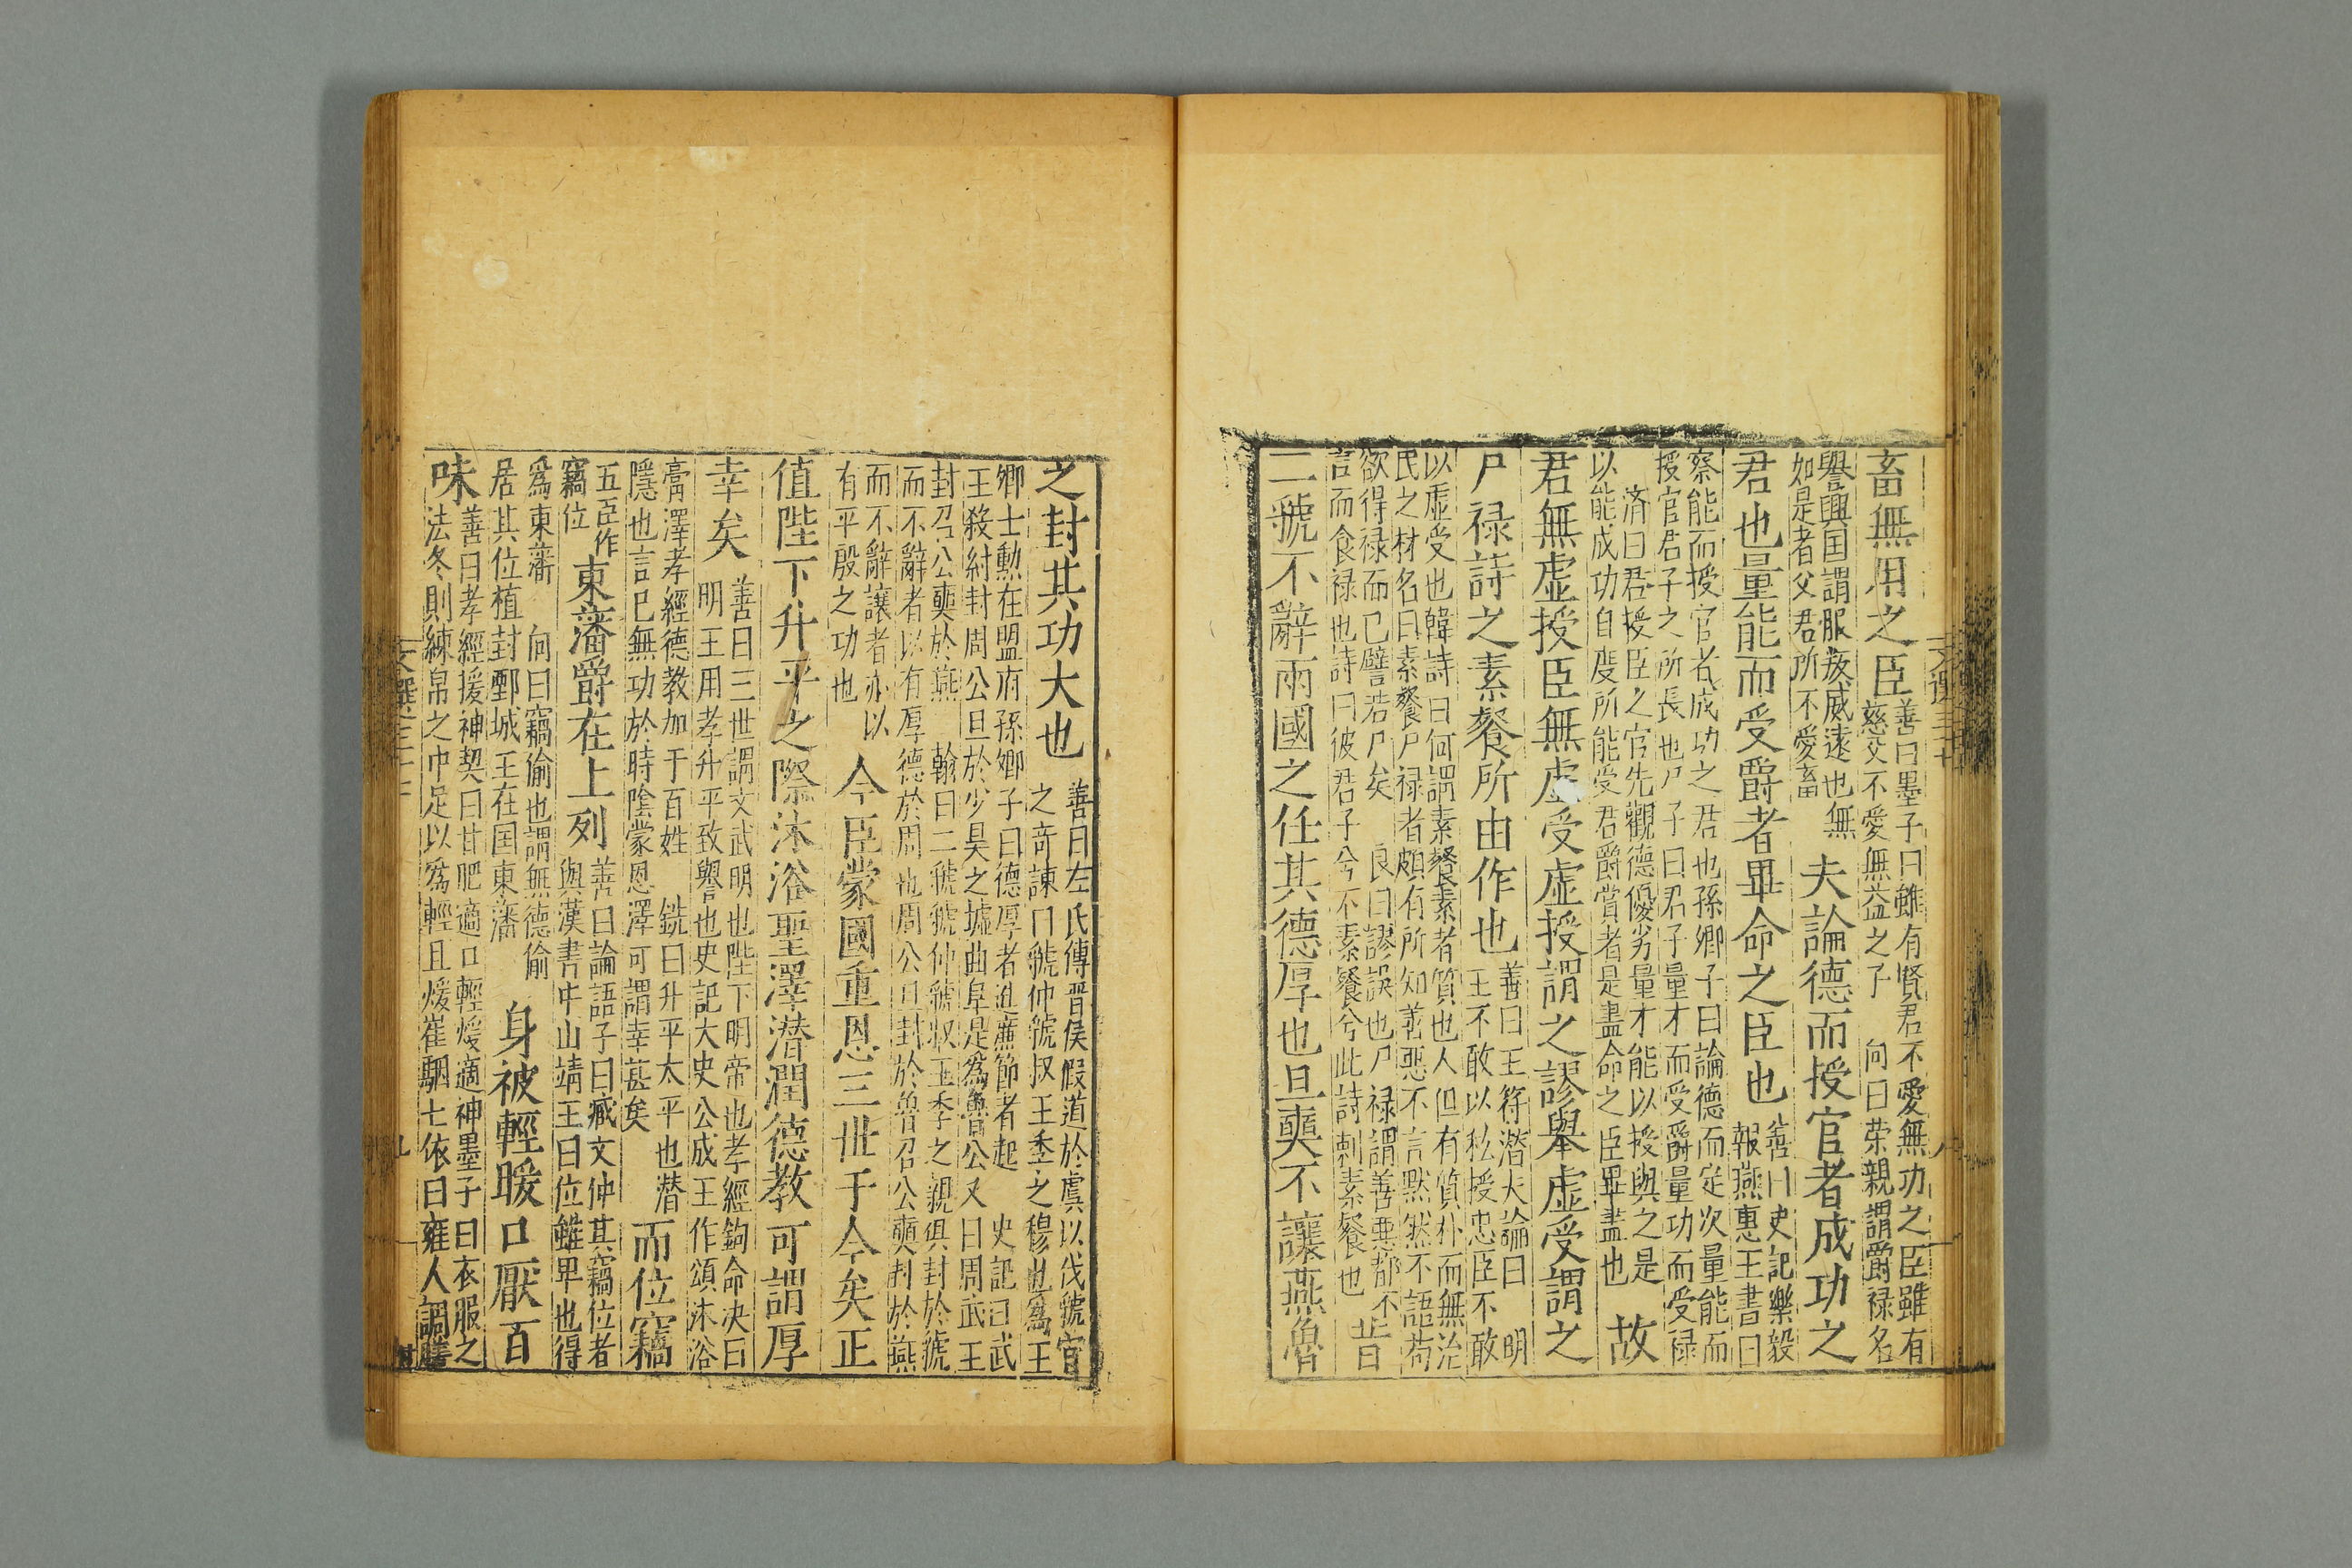 畜無用之臣善曰墨子曰雖有賢君不愛無功之臣雖有
慈父不愛無益之子 向曰荣親謂爵禄名
譽興国謂服叛威遠也無
如是者父君所不愛畜夫論德而授官者成功之
君也量能而受爵者畢命之臣也善曰史記樂毅
報燕惠王書曰
察能而授官者成功之君也孫卿子曰論德而定次量能而
授官君子之所長也尸子曰君子量才而受爵量功而受禄
济曰君授臣之官先觀德優劣量才能以授與之是
以能成功自度所能受君爵賞者是盡命之臣畢盡也故
君無虚授臣無虚受虚授謂之謬舉虚受謂之
尸禄詩之素餐所由作也善曰王符潜夫論曰 明
王不敢以私授忠臣不敢
以虚受也韓詩曰何謂素餐素者質也人但有質朴而無治
民之材名曰素餐尸禄者頗有所知善惡不言默然不語苟
欲得禄而已譬若尸矣 良曰謬誤也尸禄謂善悪都不
言而食禄也詩曰彼君子兮不素餐兮此詩刺素餐也昔
二虢不辭兩國之任其德厚也旦奭不讓燕魯
之封其功大也善曰左氏傳晋侯假道於虞以伐虢官
之奇諫曰虢仲虢叔王季之穆也爲王
卿士勲在盟府孫卿子曰德厚者進廉節者起 史記曰武
王殺紂封周公旦於少昊之墟曲阜是爲魯公又曰周武王
封召公奭於燕 翰曰二虢虢仲虢叔王季之親俱封於虢
而不辭者以有厚德於周也周公旦封於魯召公奭封於燕
而不辭讓者亦以
有平殷之功也今臣蒙國重恩三世于今矣正
值陛下升平之際沐浴聖澤潜潤德教可謂厚
幸矣善曰三世謂文武明也陛下明帝也孝經鉤命决曰
明王用孝升平致譽也史記大史公成王作頌沐浴
膏澤孝經德教加于百姓 銑曰升平太平也潜
隱也言已無功於時隂蒙恩澤可謂幸甚矣而位竊
五臣作
竊位東藩爵在上列善曰論語子曰臧文仲其竊位者
與漢書中山靖王曰位雖卑也得
爲東藩 向曰竊偷也謂無德偷
居其位植封鄄城王在国東藩身被輕暖口厭百
味善曰孝經援神契曰甘肥適口輕煖適神墨子曰衣服之
法冬則練帛之中足以爲輕且煖崔駰七依曰雍人調膳